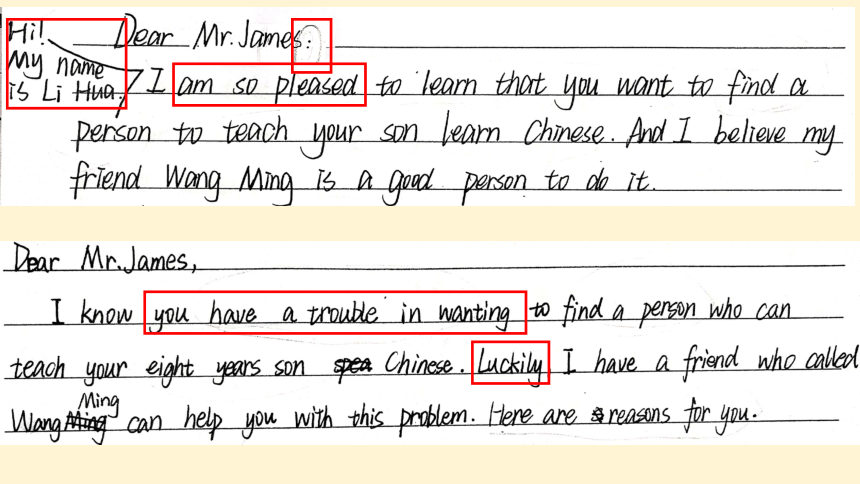 Hi!
My name
is Li Hua.
Dear Mr. James:
I am so pleased to learn that you want to find a
person to teach your son learn Chinese. And I believe my
friend Wang Ming is a good person to do it.
Dear Mr. James,
I know you have a trouble in wanting to find a person who can
teach your eight years son Chinese. Luckily I have a friend who called
Wang Ming can help you with this problem. Here are reasons for you.